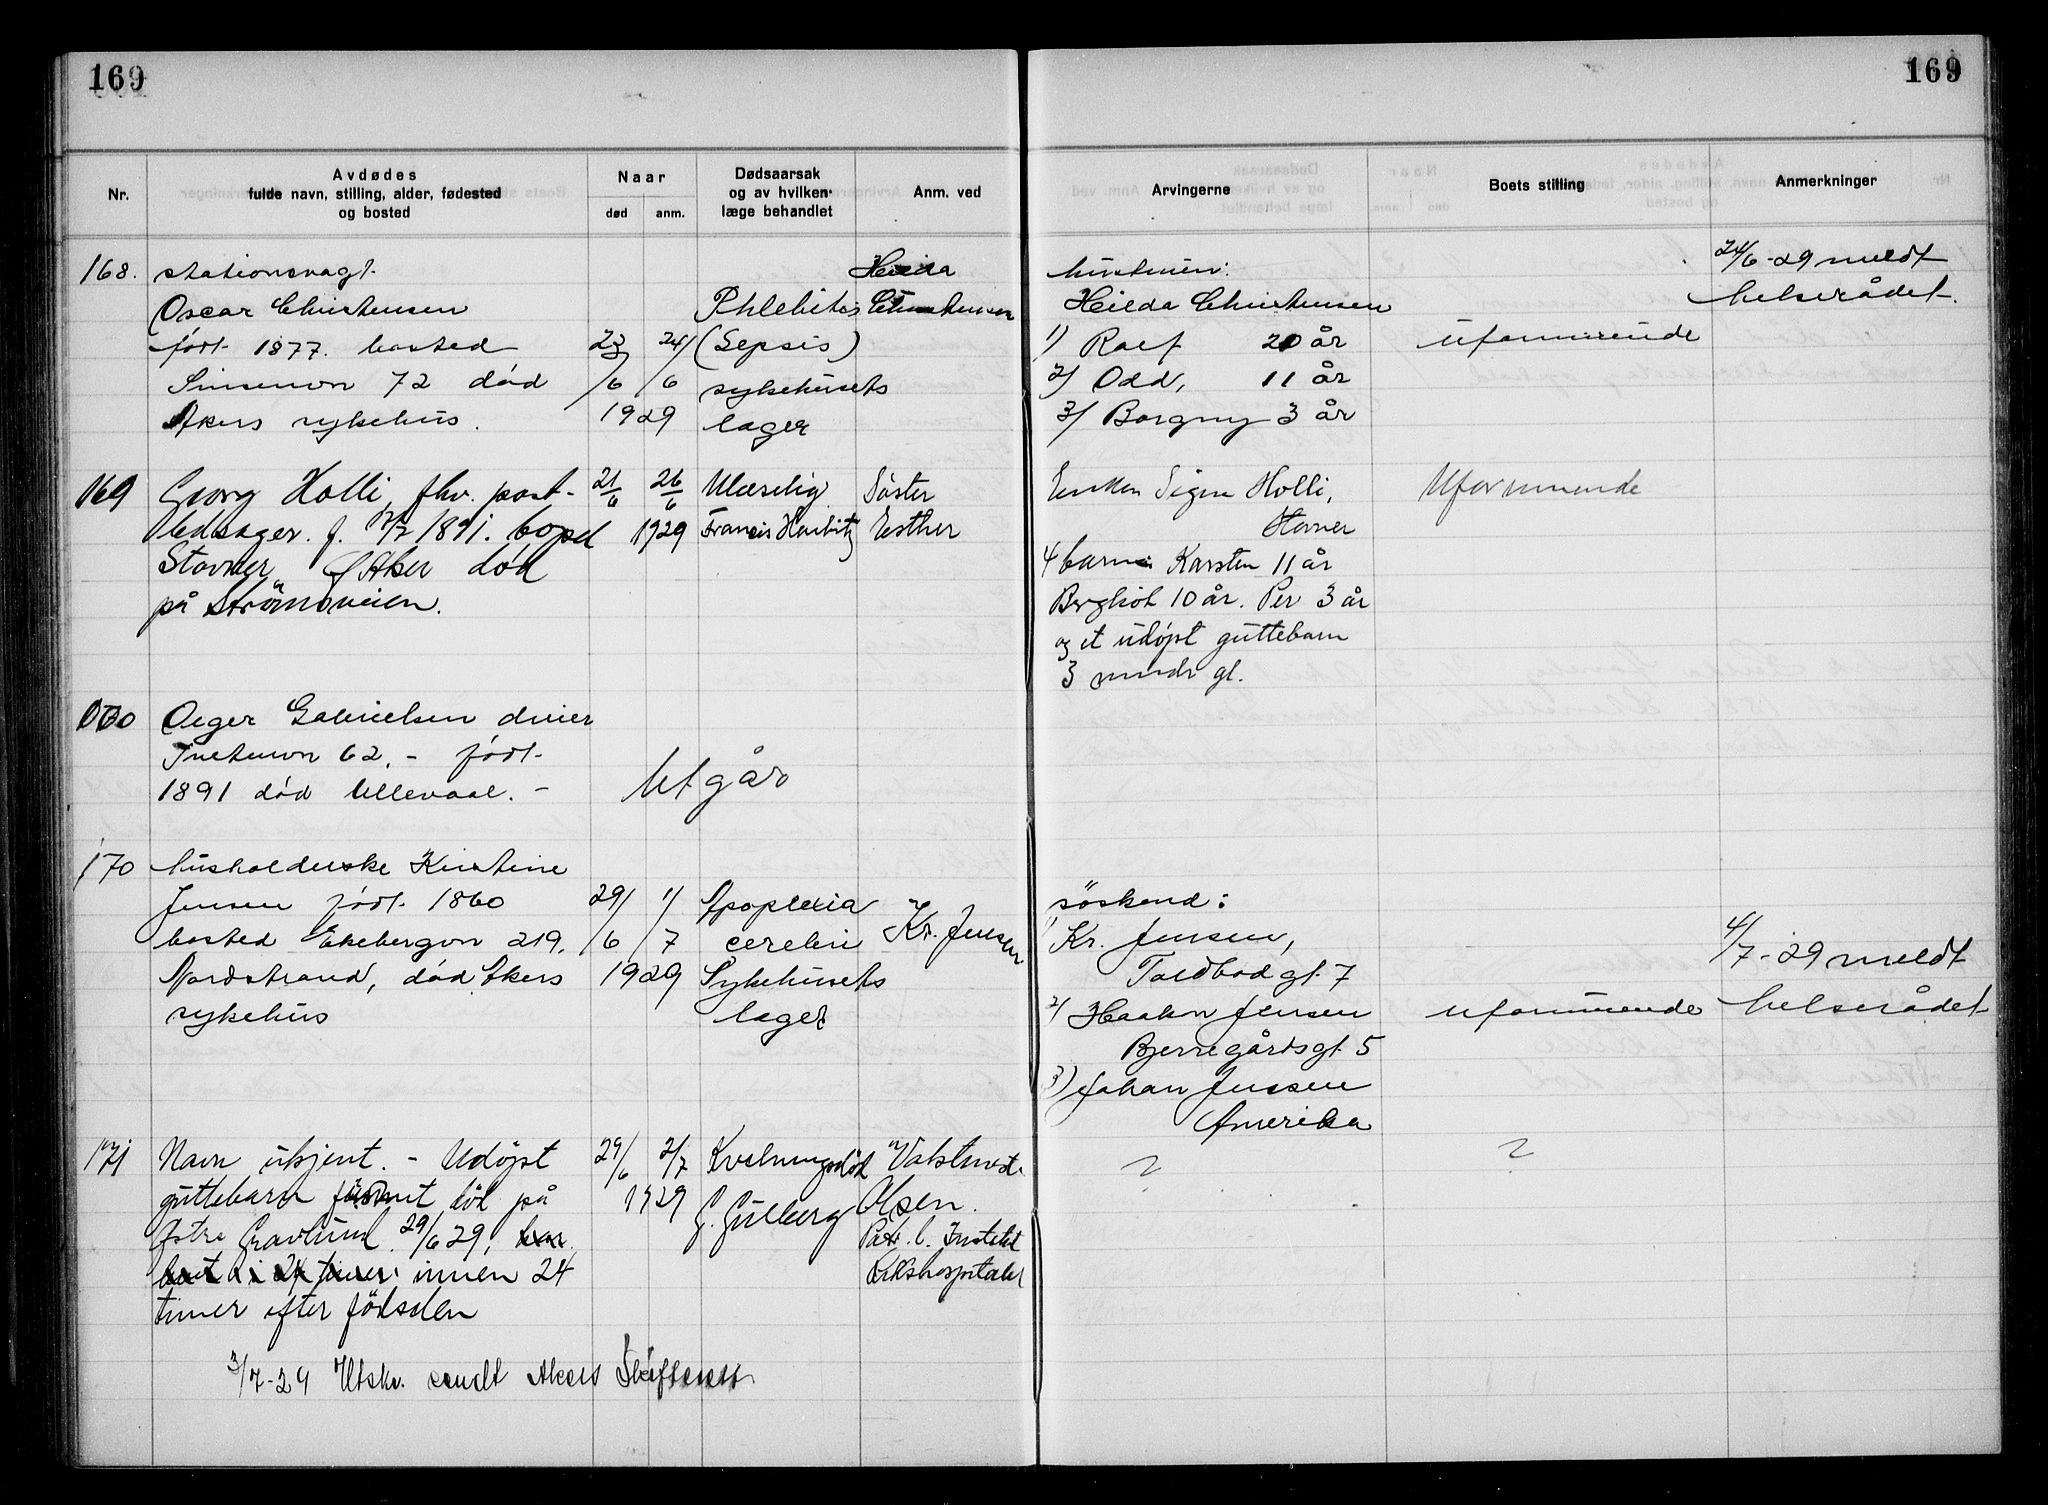 169
169
Nr.
Avdødes
fulde navn, stilling, alder, fødested
og bosted
Naar
død
anm.
Dødsaarsak
og av hvilken
læge behandlet
Anm. ved
Arvingerne
Boets stilling
Anmerkninger
168.
stationsvagt
Oscar Christensen
født 1877. bosted
Sinsenvn 72 død
Akers sykehus.
23/6
24/6
1929
Phlebitis
(Sepsis)
sykehusets
læger
Hilda
Christensen
hustruen:
Hilda Christensen
1) Rolf 20 år
2) Odd, 11 år
3) Borgny 3 år
uformuende
24/6-29 meldt
helserådet.
169
Georg Holli, fhv. post-
ledsager. f. 1891. bopel
Stovner Ø Aker død
på Strömsveien.
21/6
26/6
1929
Ulæselig
Francis Harbitz
Søster
Esther
Enken Signe Holli,
4 barn: Karsten 11 år
Bergliot 10 år. Per 3 år
og et udøpt guttebarn
3 mndr gl.
Uformuende
170
Gabrielsen
62. - født
1891 død Ullevaal. -
Utgår
170
husholderske Kirstine
Jensen født 1860
bosted Ekebergvn 219,
Nordstrand, død Akers
sykehus
29/6
1/7
1929
Apoplexia
cerebri
Sykehusets
læger
Kr. Jensen
søskend:
1) Kr. Jensen,
Toldbod gt 7
2) Haakon Jensen
Bjerregårdsgt 5
3) Johan Jensen
Amerika
uformuende
4/7-29 meldt
helserådet
171
Navn ukjent. - Udøpt
guttebarn funnet død på
Østre Gravlund 29/6 29,
innen 24
timer efter fødselen
29/6
2/7
1929
Kvelningsdød
Vaktmest.
Olsen.
Pat. Institut
Rikshospitalet
?
?
3/7-29 Utskr. sendt Akers Skifterett